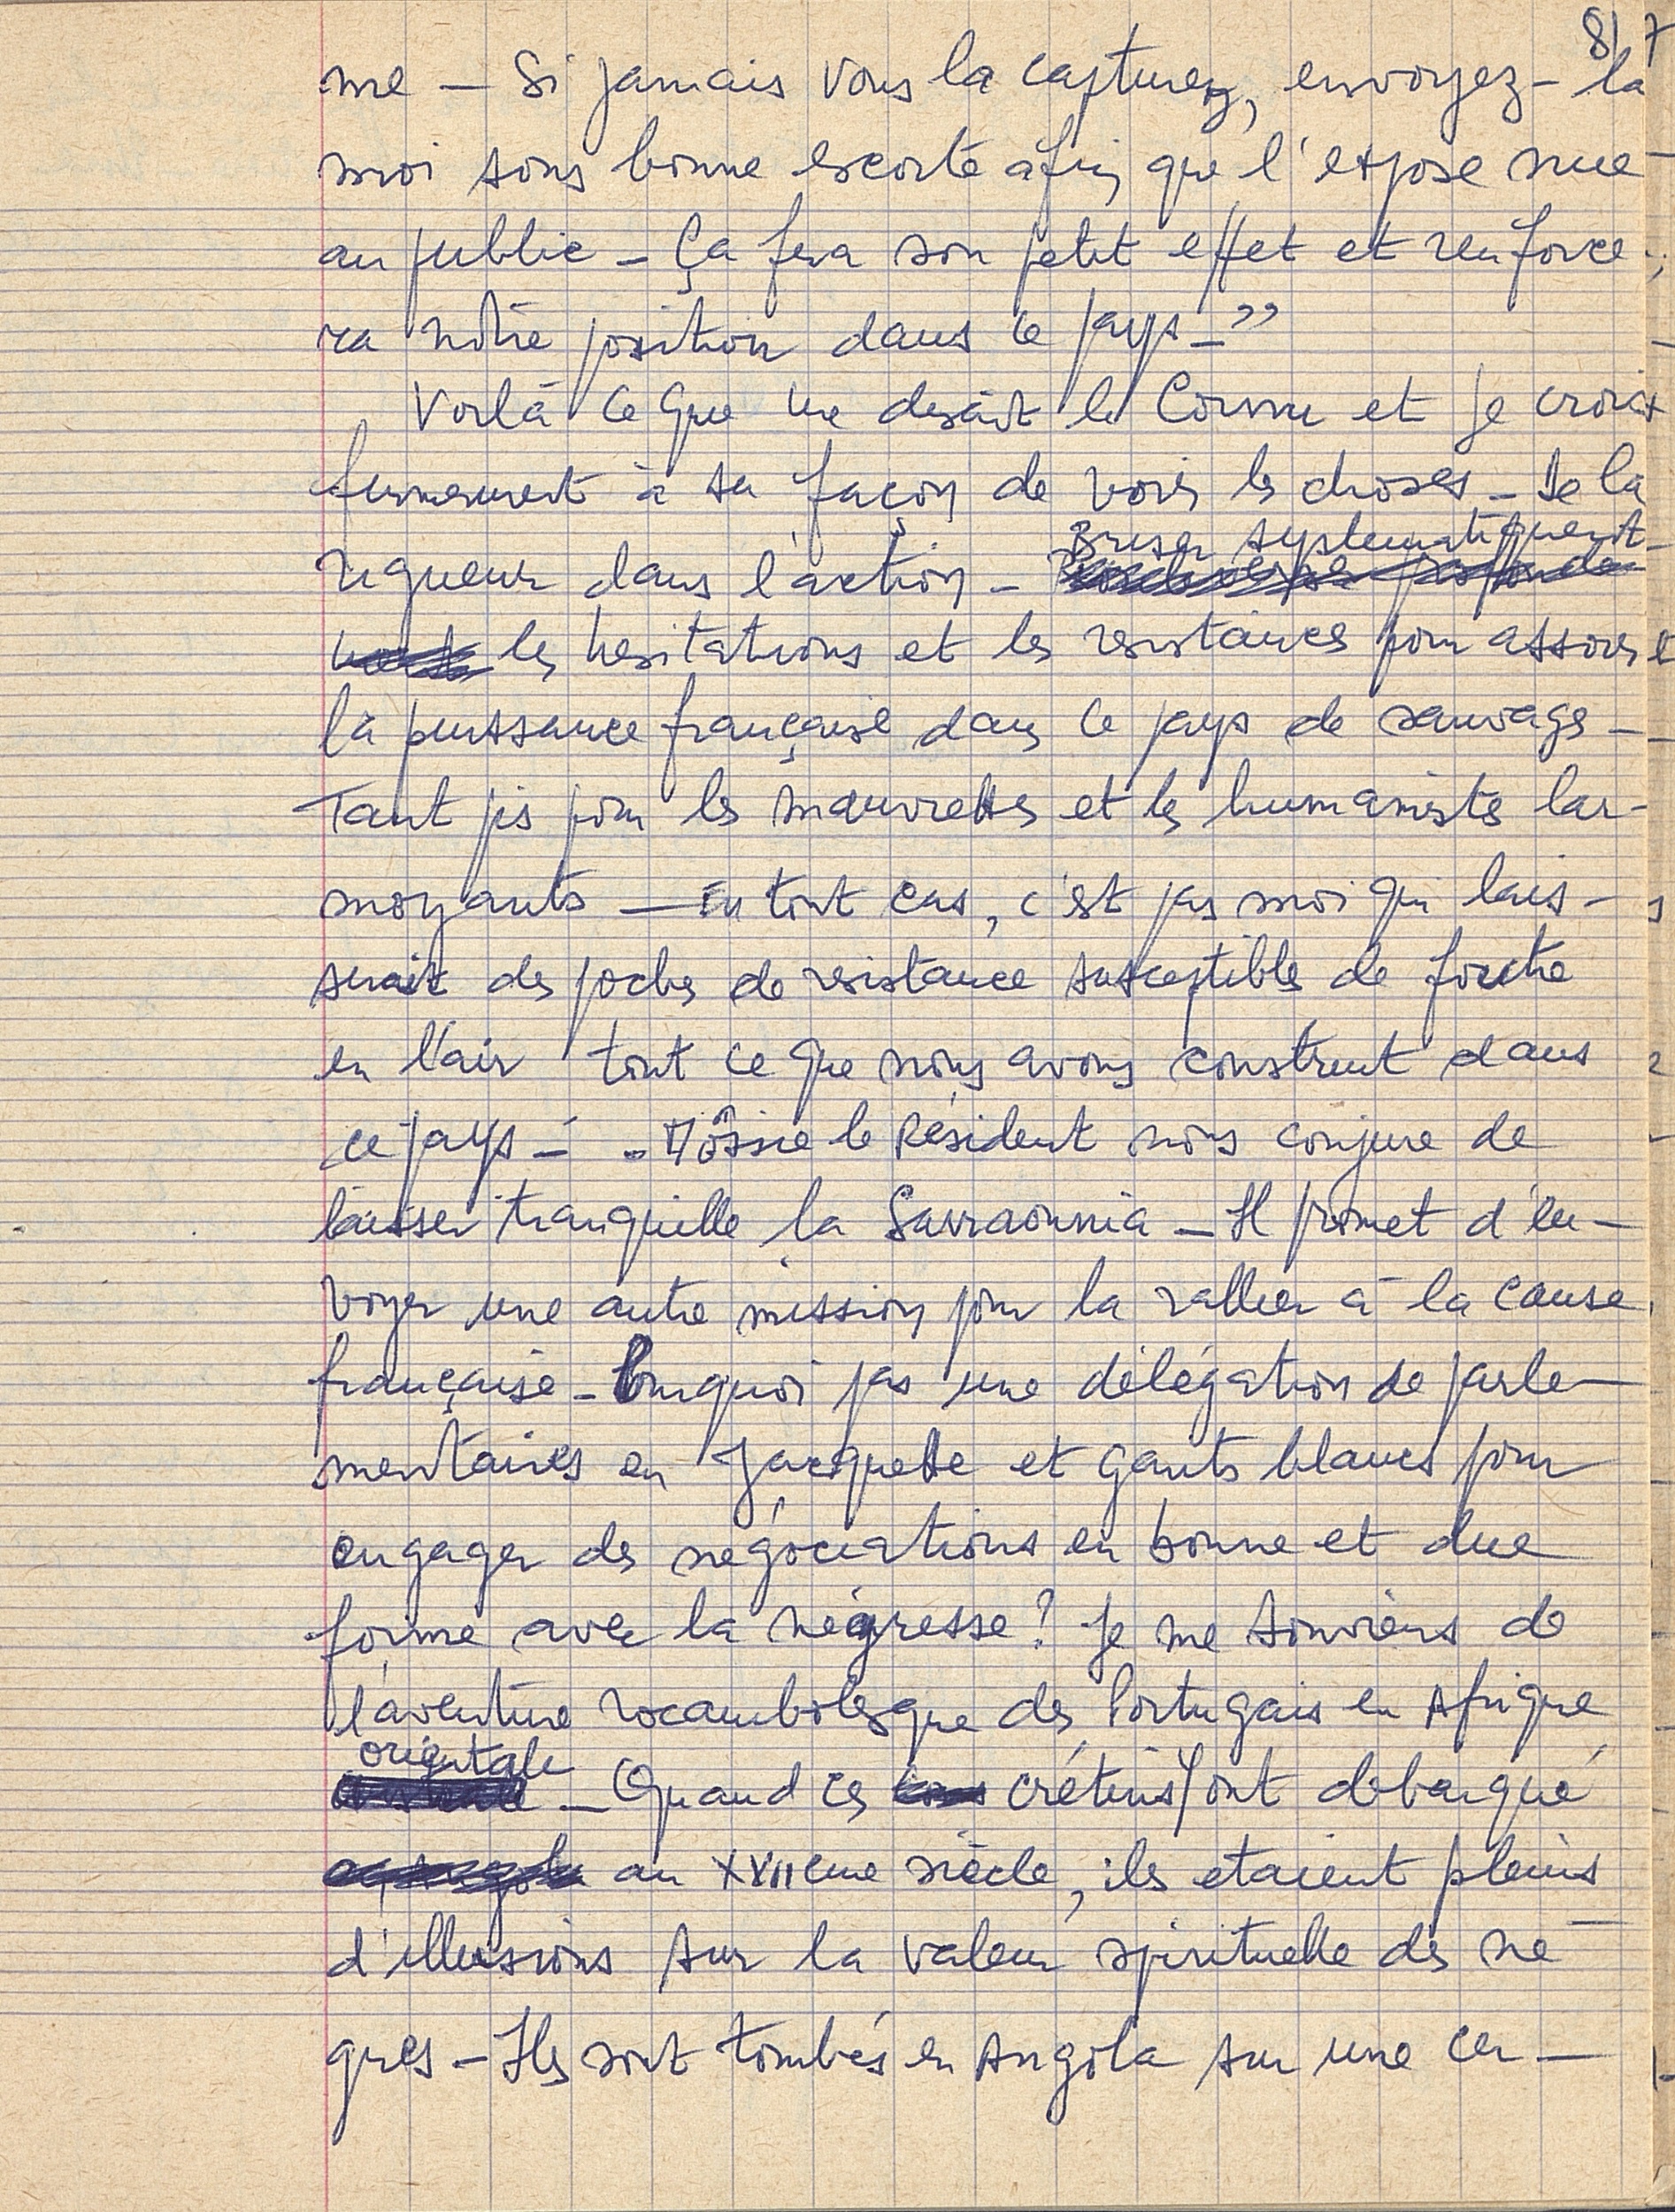 8/7
me – Si jamais vous la capturez, envoyez-la
moi sous bonne escorte afin que l'expose nue
au public – Ça fera son petit effet et renforce
ra notre position dans ce pays – "
Voilà ce que me disait le Cornu et je crois
fermement à sa façon de voir les choses – De la
rigueur dans l'action –
Briser systematiquement
les hesitations et les resistances pour assoir
la puissance française dans ce pays de sauvages –
Tant pis pour les mauvrettes et les humanistes lar-
moyants – En tout cas, c'est pas moi qui lais-
serait des poches de resistance susceptibles de foutre
en l'air tout ce que nous avons construit dans
ce pays – – Môssie le Résident nous conjure de
laisser tranquille la Sarraounnia – Il promet d'en-
voyer une autre mission pour la rallier à la cause
française – Pourquoi pas une délégation de parle-
mentaires en Jacquette et gants blancs pour
engager des négociations en bonne et due
forme avec la négresse ? Je me souviens de
l'aventure rocambolesque des Portugais en Afrique
orientale
– Quand ces crétins ont debarqué
au XVIIeme siècle, ils etaient pleins
d'illusions sur la valeur spirituelle des ne-
gres – Ils sont tombés en Angola sur une cer-